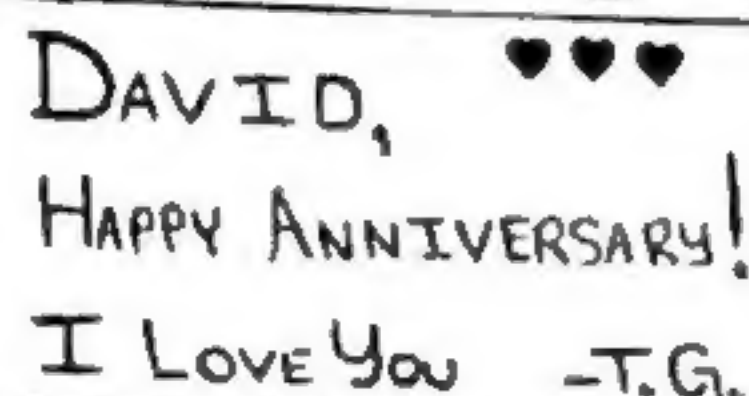 DAVID, ♥♥♥
HAPPY ANNIVERSARY!
I LOVE You -T.G.